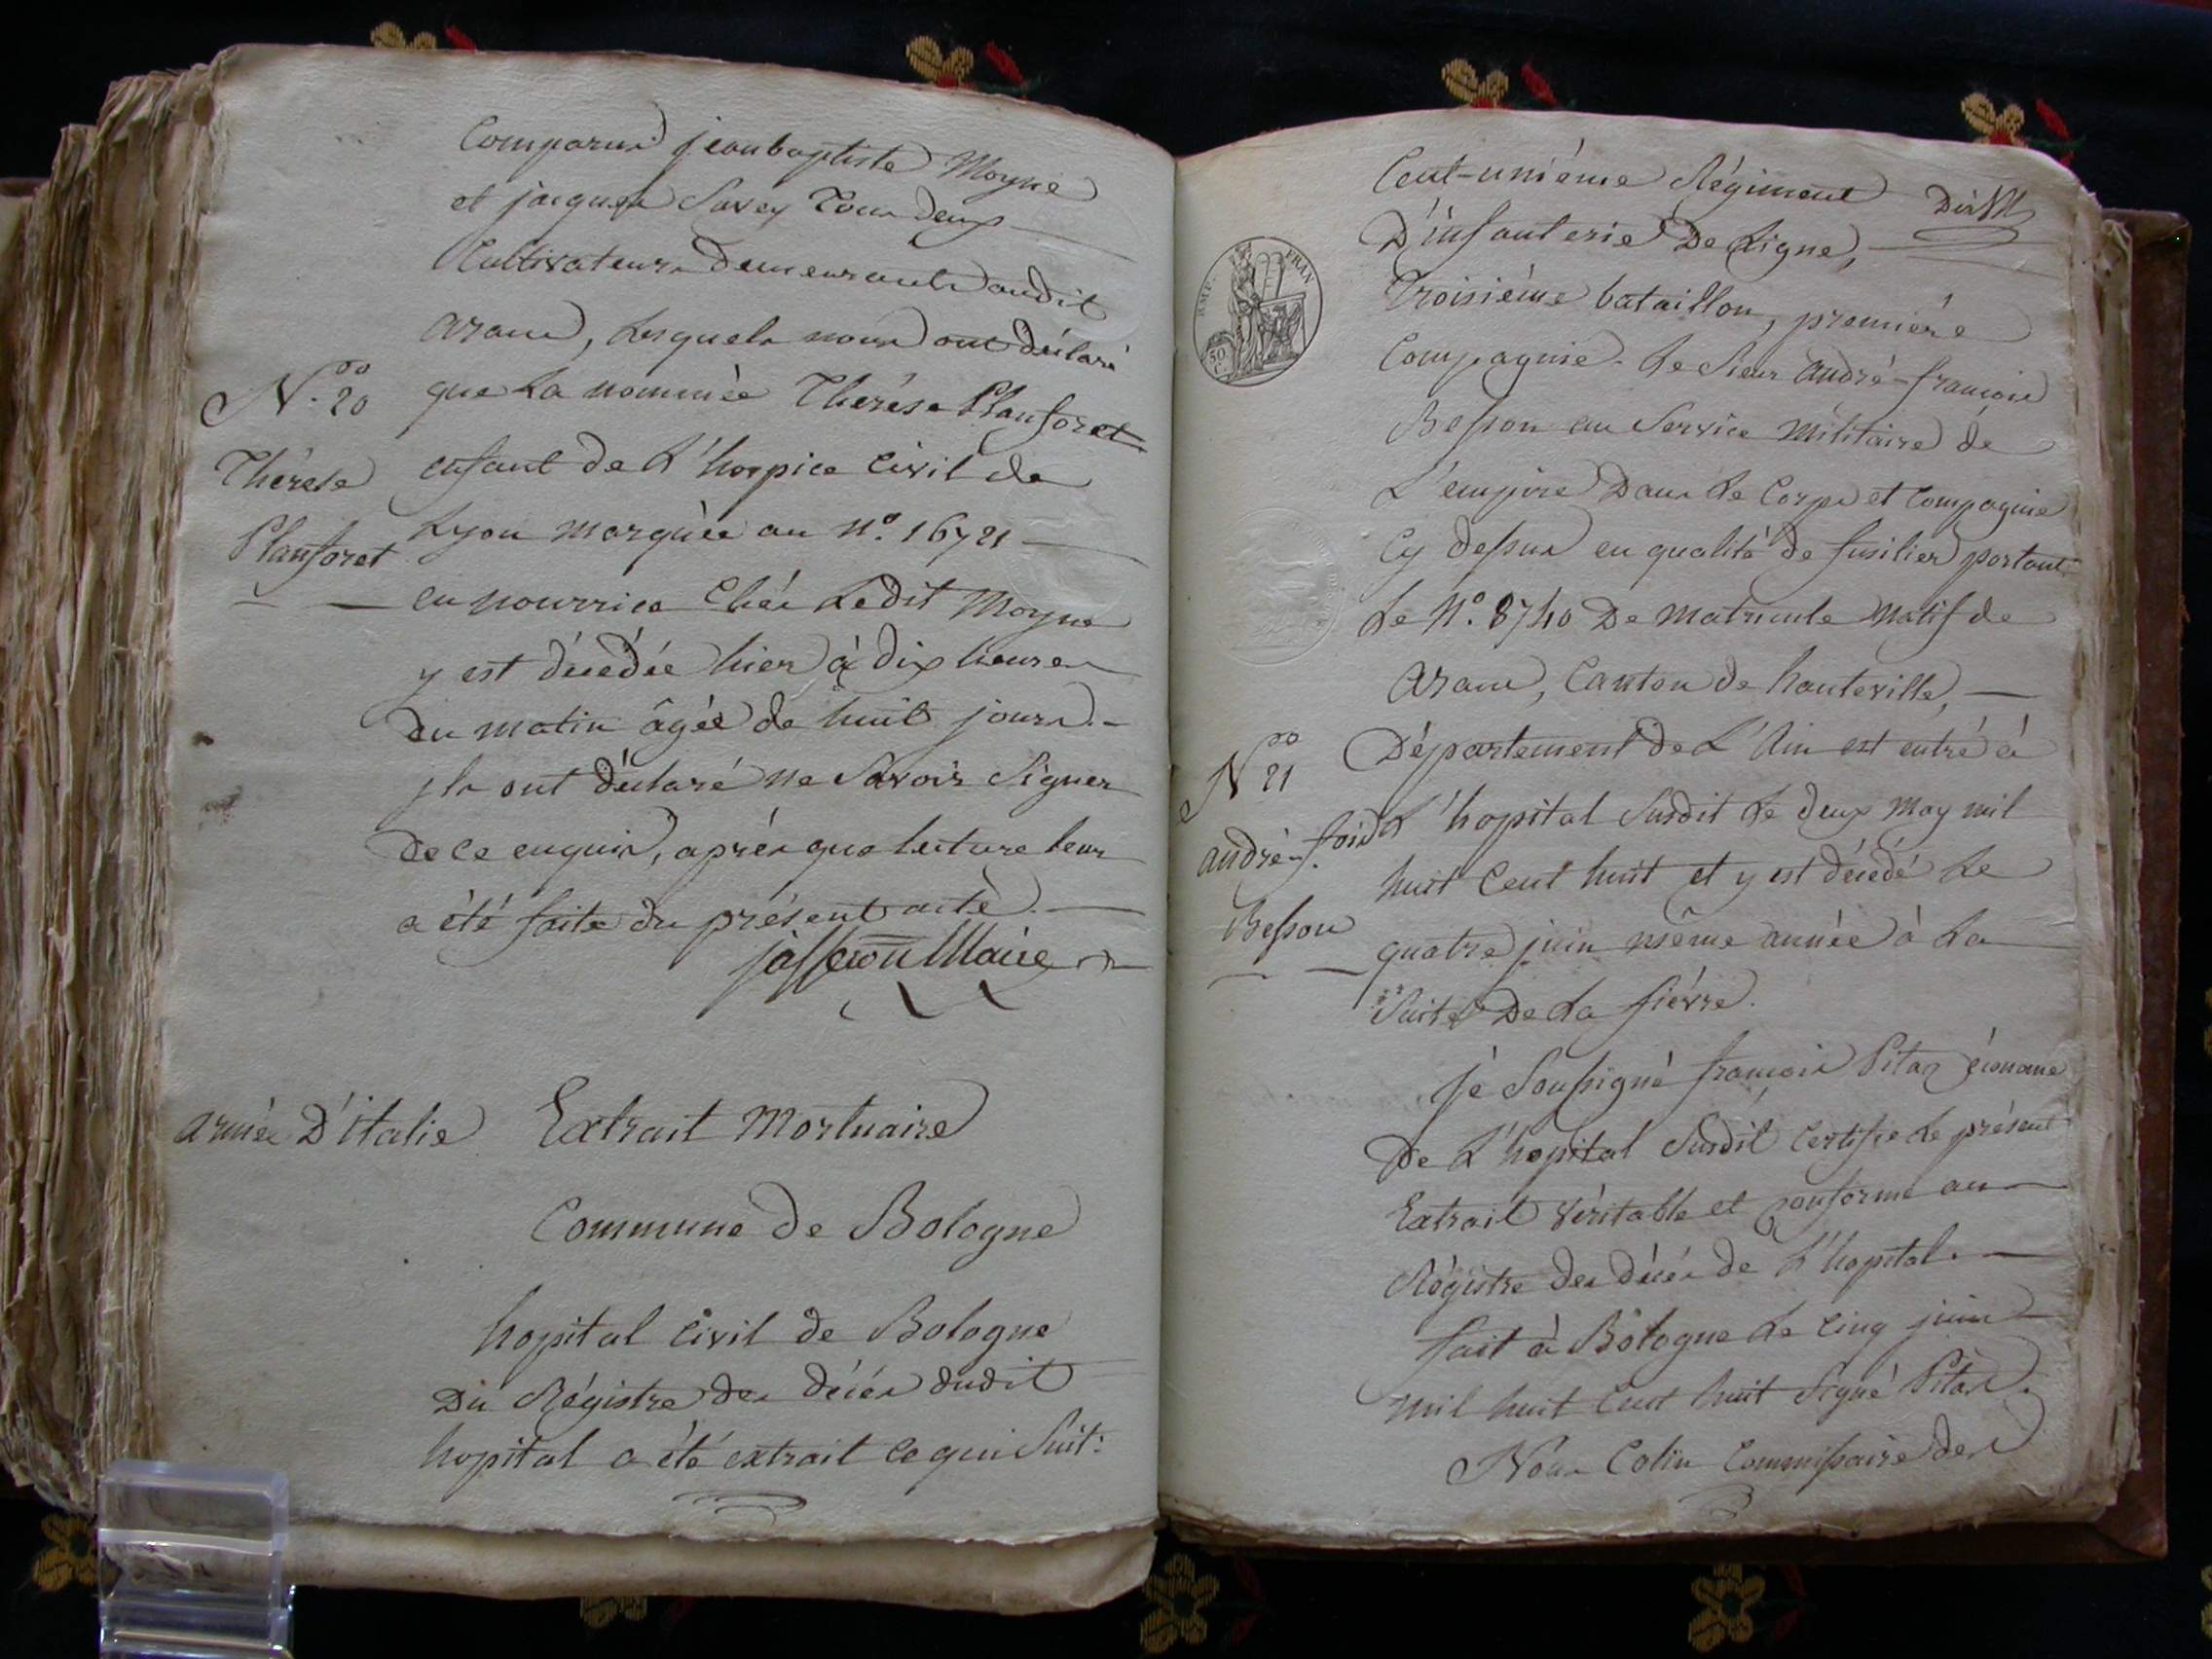 Comparus jeanbaptiste Moyne
et jacques Savey tous deux
Cultivateurs demeurants audit
aranc, lesquels nous ont déclaré
N.º 20
que la nommée Thérèse Planforet
Thérèse
enfant de l'hospice civil de
Planforet
Lyon marquée au Nº. 16721
en nourrice chés ledit Moyne
y est décedée hier à dix heures
du matin âgée de huit jours.
ils ont déclaré ne savoir signer
de ce enquis, après que lecture leur
a été faite du présent acte.
Maire
armée D'italie
Extrait Mortuaire
Commune de Bologne
hopital civil de Bologne
Du Régistre des décès dudit
hopital a été extrait ce qui suit:
Cent-unième Régiment
D'infanterie De Ligne,
Troisième bataillon, première
Compagnie. Le Sieur andré-françois
IMP. FRAN
50 C.
Besson au Service Militaire de
L'empire Dans le Corps et Compagnie
Cy dessus en qualité de fusilier portant
Le Nº. 8740 De Matricule Natif de
Aranc, Canton de hauteville,
N.º 21
Département de L'Ain est entré à
andré-fois
L'hopital susdit le deux May mil
huit Cent huit et y est décedé le
Besson
quatre juin même année à la
Suite De la fièvre.
je Soussigné françois Pitar économe
De L'hopital Susdit Certifie le présent
Extrait véritable et conforme au
Régistre des décès de L'hopital.
fait à Bologne le cinq juin
mil huit Cent huit Signé Pitar.
Nous Colin Commissaire des